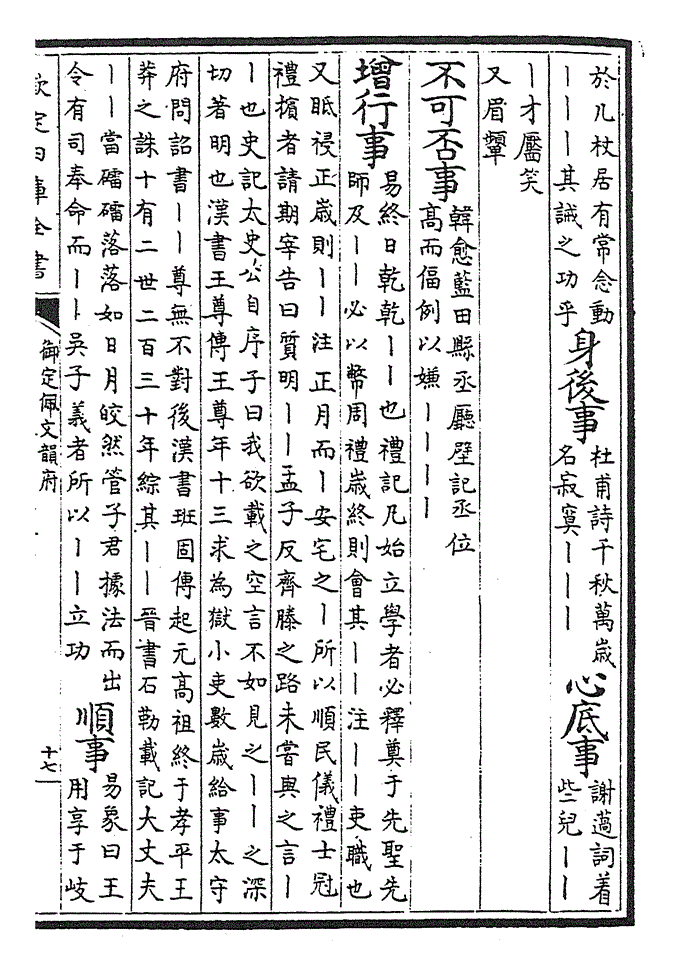 於几杖居有常念動
丨丨丨丨其誡之功乎
身後事
杜甫詩千秋萬歲
名寂寞丨丨丨
心底事
謝薖詞着
些兒丨丨
丨才靨笑
又眉顰
不可否事
韓愈藍田縣丞廳壁記丞位
高而偪例以嫌丨丨丨丨
增行事
易終日乾乾丨丨也禮記凡始立學者必釋奠于先聖先
師及丨丨必以幣周禮歲終則會其丨丨注丨丨吏職也
又眡祲正歲則丨丨注正月而丨安宅之丨所以順民儀禮士冠
禮擯者請期宰告曰質明丨丨孟子反齊滕之路未嘗與之言丨
丨也史記太史公自序子曰我欲載之空言不如見之丨丨之深
切著明也漢書王尊傳王尊年十三求為獄小吏數歲給事太守
府問詔書丨丨尊無不對後漢書班固傳起元高祖終于孝平王
莽之誅十有二世二百三十年綜其丨丨晉書石勒載記大丈夫
丨丨當礌礌落落如日月皎然管子君據法而出
令有司奉命而丨丨吳子義者所以丨丨立功
順事
易象曰王
用享于岐
欽定四庫全書
御定佩文韻府
十七